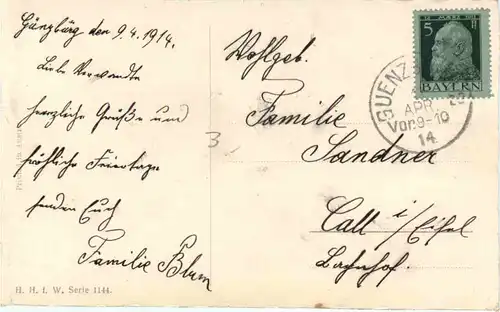 Günzburg den 9.4.1914.
Liebe Verwandte
herzliche Grüße und
fröhliche Feiertage
senden Euch
Familie Blum
H. H. i. W. Serie 1144.
3
Wohlgeb.
Familie
Sandner
Call i/Eifel
Bahnhof.
12 MÄRZ 1911
5 Pf
BAYERN
GUENZ
APR
Vor.9-10
14